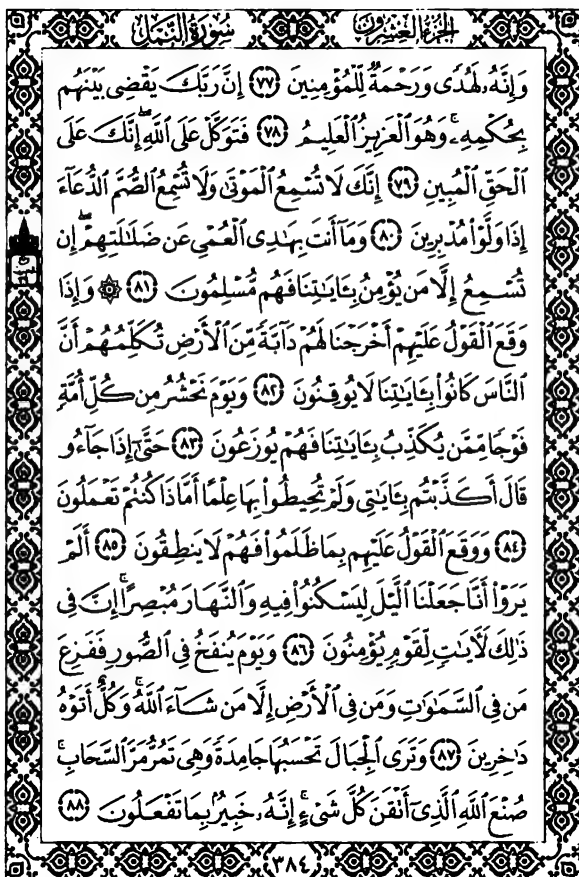 سُورَةُ النَّمْلِ الجُزْءُ العِشْرُونَ
وَإِنَّهُۥ لَهُدًى وَرَحْمَةٌ لِّلْمُؤْمِنِينَ ٧٧ إِنَّ رَبَّكَ يَقْضِى بَيْنَهُم
بِحُكْمِهِۦۚ وَهُوَ ٱلْعَزِيزُ ٱلْعَلِيمُ ٧٨ فَتَوَكَّلْ عَلَى ٱللَّهِۖ إِنَّكَ عَلَى
ٱلْحَقِّ ٱلْمُبِينِ ٧٩ إِنَّكَ لَا تُسْمِعُ ٱلْمَوْتَىٰ وَلَا تُسْمِعُ ٱلصُّمَّ ٱلدُّعَآءَ
إِذَا وَلَّوْا۟ مُدْبِرِينَ ٨٠ وَمَآ أَنتَ بِهَٰدِى ٱلْعُمْىِ عَن ضَلَٰلَتِهِمْۖ إِن
تُسْمِعُ إِلَّا مَن يُؤْمِنُ بِـَٔايَٰتِنَا فَهُم مُّسْلِمُونَ ٨١ ۞ وَإِذَا
وَقَعَ ٱلْقَوْلُ عَلَيْهِمْ أَخْرَجْنَا لَهُمْ دَآبَّةً مِّنَ ٱلْأَرْضِ تُكَلِّمُهُمْ أَنَّ
ٱلنَّاسَ كَانُوا۟ بِـَٔايَٰتِنَا لَا يُوقِنُونَ ٨٢ وَيَوْمَ نَحْشُرُ مِن كُلِّ أُمَّةٍ
فَوْجًا مِّمَّن يُكَذِّبُ بِـَٔايَٰتِنَا فَهُمْ يُوزَعُونَ ٨٣ حَتَّىٰٓ إِذَا جَآءُو
قَالَ أَكَذَّبْتُم بِـَٔايَٰتِى وَلَمْ تُحِيطُوا۟ بِهَا عِلْمًا أَمَّاذَا كُنتُمْ تَعْمَلُونَ
٨٤ وَوَقَعَ ٱلْقَوْلُ عَلَيْهِم بِمَا ظَلَمُوا۟ فَهُمْ لَا يَنطِقُونَ ٨٥ أَلَمْ
يَرَوْا۟ أَنَّا جَعَلْنَا ٱلَّيْلَ لِيَسْكُنُوا۟ فِيهِ وَٱلنَّهَارَ مُبْصِرًاۚ إِنَّ فِى
ذَٰلِكَ لَـَٔايَٰتٍ لِّقَوْمٍ يُؤْمِنُونَ ٨٦ وَيَوْمَ يُنفَخُ فِى ٱلصُّورِ فَفَزِعَ
مَن فِى ٱلسَّمَٰوَٰتِ وَمَن فِى ٱلْأَرْضِ إِلَّا مَن شَآءَ ٱللَّهُۚ وَكُلٌّ أَتَوْهُ
دَٰخِرِينَ ٨٧ وَتَرَى ٱلْجِبَالَ تَحْسَبُهَا جَامِدَةً وَهِىَ تَمُرُّ مَرَّ ٱلسَّحَابِۚ
صُنْعَ ٱللَّهِ ٱلَّذِىٓ أَتْقَنَ كُلَّ شَىْءٍۚ إِنَّهُۥ خَبِيرٌۢ بِمَا تَفْعَلُونَ ٨٨
٣٨٤